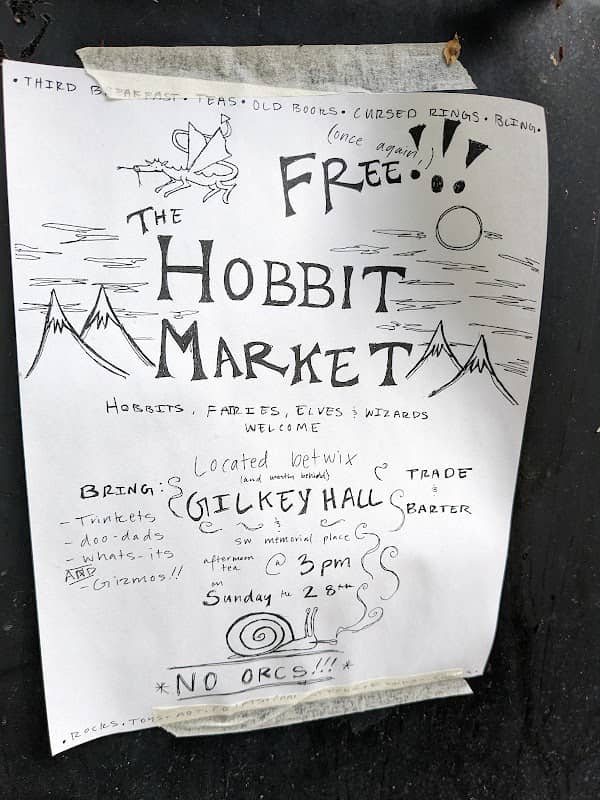 • THIRD BREAKFAST • TEAS • OLD BOOKS • CURSED RINGS • BLING •
(once again!)
FREE!!!
THE
HOBBIT
MARKET
HOBBITS, FAIRIES, ELVES & WIZARDS
WELCOME
Located betwix
(and mostly behind)
GILKEY HALL
&
SW memorial place
afternoon tea @ 3 pm
on
Sunday the 28th
BRING:
- Trinkets
- doo-dads
- whats-its
AND
- Gizmos!!
TRADE
&
BARTER
* NO ORCS!!! *
• ROCKS • TOYS •